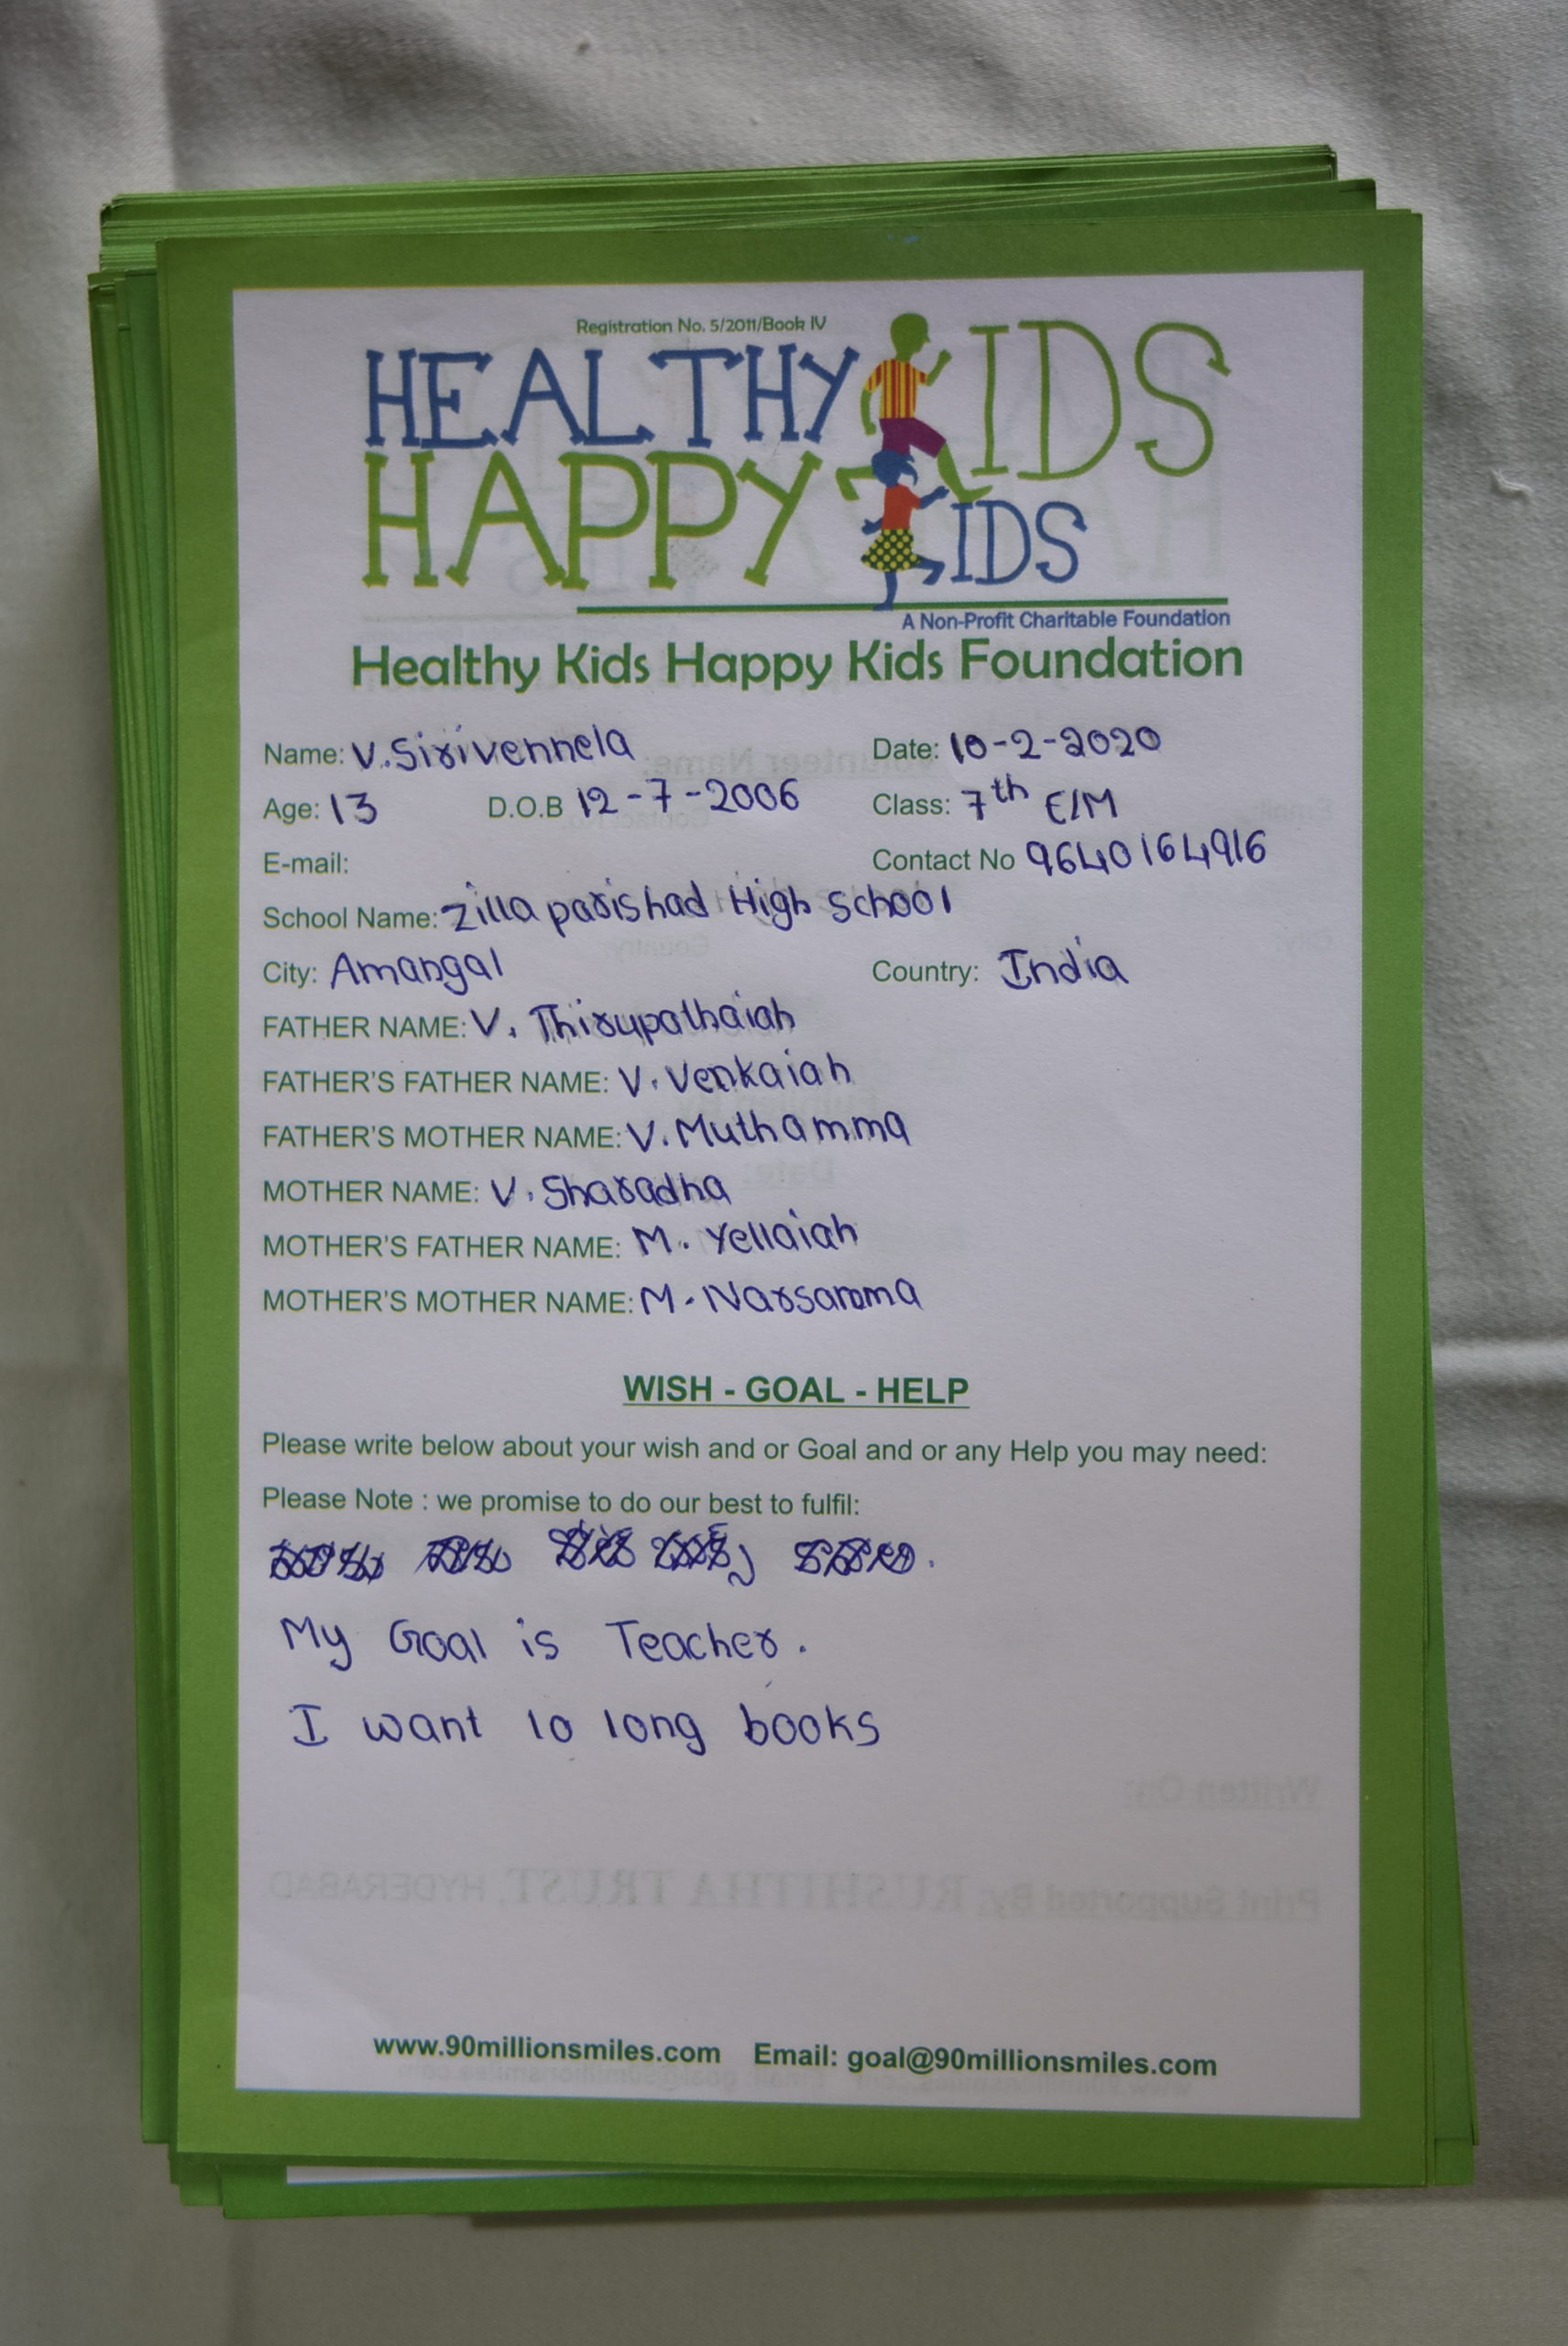 Registration No. 5/2011/Book IV
HEALTHY KIDS
HAPPY KIDS
A Non-Profit Charitable Foundation
Healthy Kids Happy Kids Foundation
Name: V. Sirivennela Date: 10-2-2020
Age: 13 D.O.B 12-7-2006 Class: 7th E/M
E-mail: Contact No 9640164916
School Name: Zilla parishad High School
City: Amangal Country: India
FATHER NAME: V. Thirupathaiah
FATHER'S FATHER NAME: V. Venkaiah
FATHER'S MOTHER NAME: V. Muthamma
MOTHER NAME: V. Sharadha
MOTHER'S FATHER NAME: M. Yellaiah
MOTHER'S MOTHER NAME: M. Narsamma
WISH - GOAL - HELP
Please write below about your wish and or Goal and or any Help you may need:
Please Note : we promise to do our best to fulfil:
My Goal is Teacher.
I want 10 long books
Written On:
Print Supported By: RUSHITHA TRUST, HYDERABAD
www.90millionsmiles.com Email: goal@90millionsmiles.com